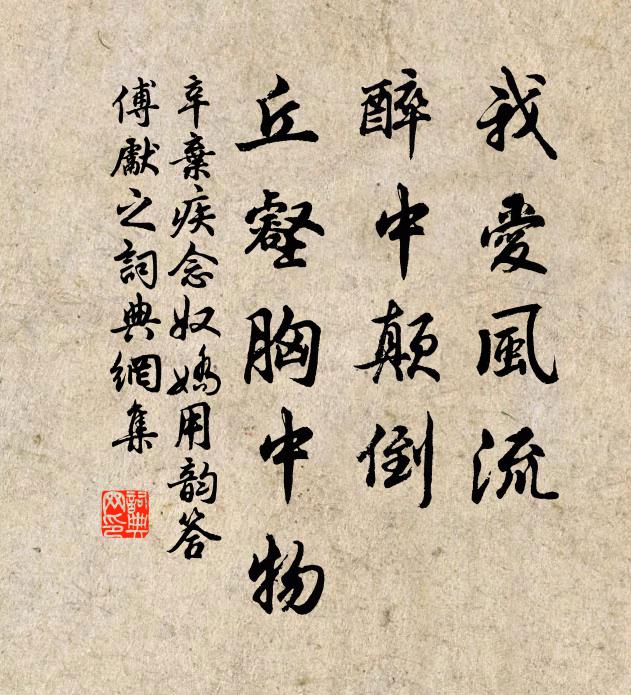 我愛風流
醉中顛倒
丘壑胸中物
辛棄疾念奴嬌用韵答
傅獻之詞典網集
詞典
网印